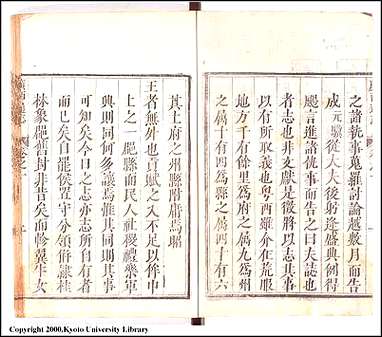 之諸執事蒐羅討論越數月而告
成元驥從大夫後躬逢盛典例得
颺言進諸執事而告之曰夫誌也
者志也非文獻是徵將以志其事
以有所取義也粵西雖介在荒服
地方千有餘里為府之屬九為州
之屬十有四為縣之屬四十有六
其土府之州縣附府焉昭
王者無外也貢賦之入不足以侔中
土之一肥縣而民人社稷禮樂軍
興則同何多讓焉雖其同則其事
可知矣今日之志亦志所自有者
而已矣自罷侯置守分領隸桂
林象郡舊封非昔矣而軫翼牛女
Copyright 2000.Kyoto University Library